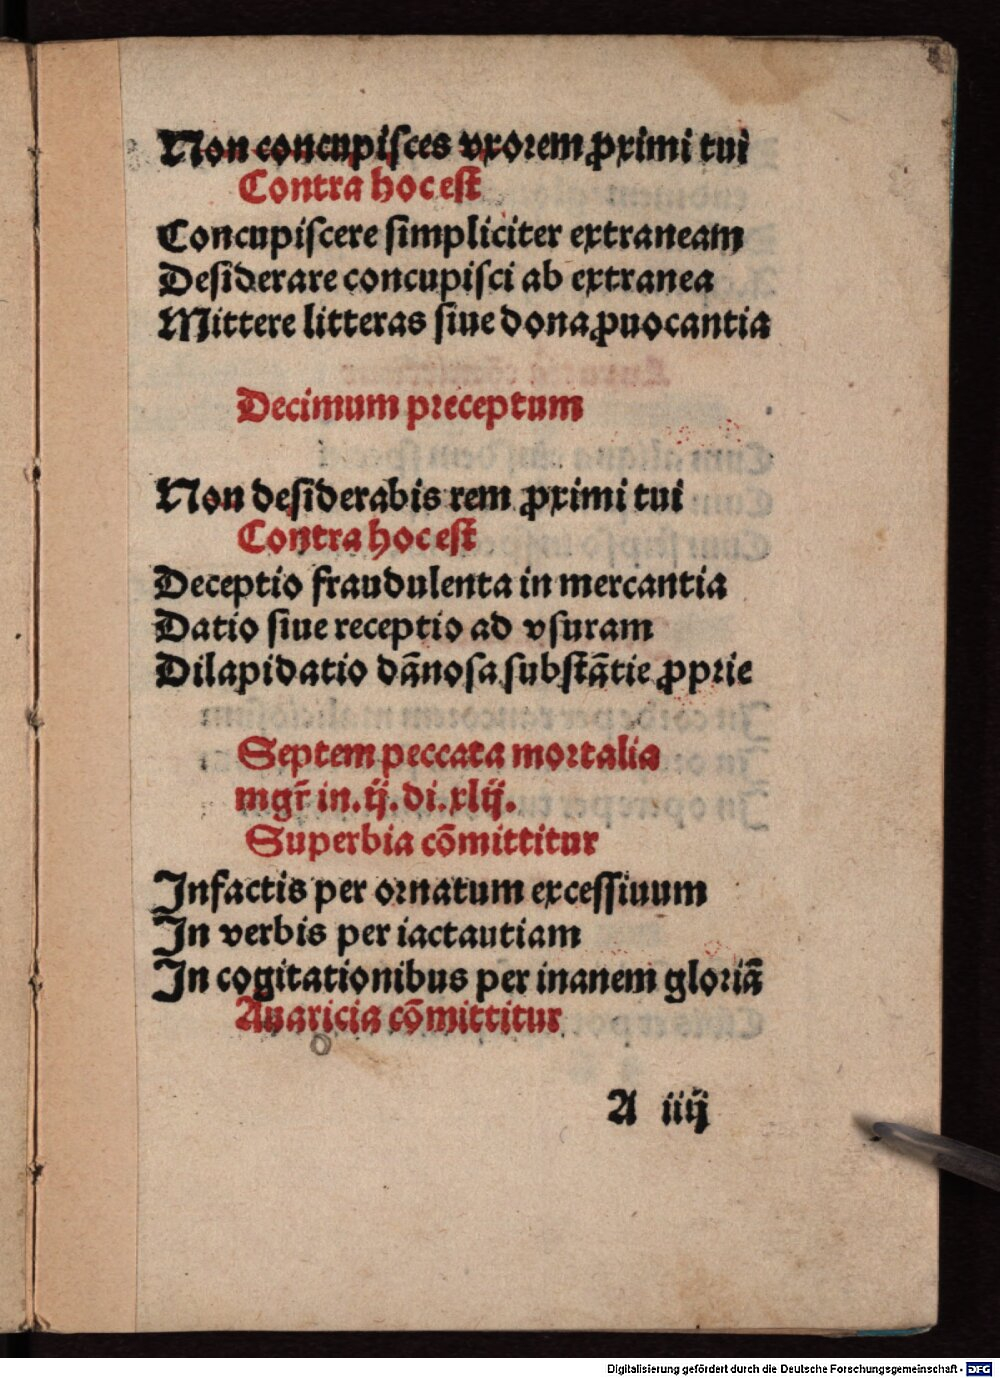 Non concupisces vxorem ꝓximi tui
Contra hoc est
Concupiscere simpliciter extraneam
Desiderare concupisci ab extranea
Mittere litteras siue dona ꝓuocantia
Decimum preceptum
Non desiderabis rem ꝓximi tui
Contra hoc est
Deceptio fraudulenta in mercantia
Datio siue receptio ad vsuram
Dilapidatio dānosa substātie ꝓprie
Septem peccata mortalia
mgr̄ in .ij. di. xlij.
Superbia cōmittitur
Infactis per ornatum excessiuum
In verbis per iactautiam
In cogitationibus per inanem gloriā
Auaricia cōmittitur
A iiij
Digitalisierung gefördert durch die Deutsche Forschungsgemeinschaft - DFG